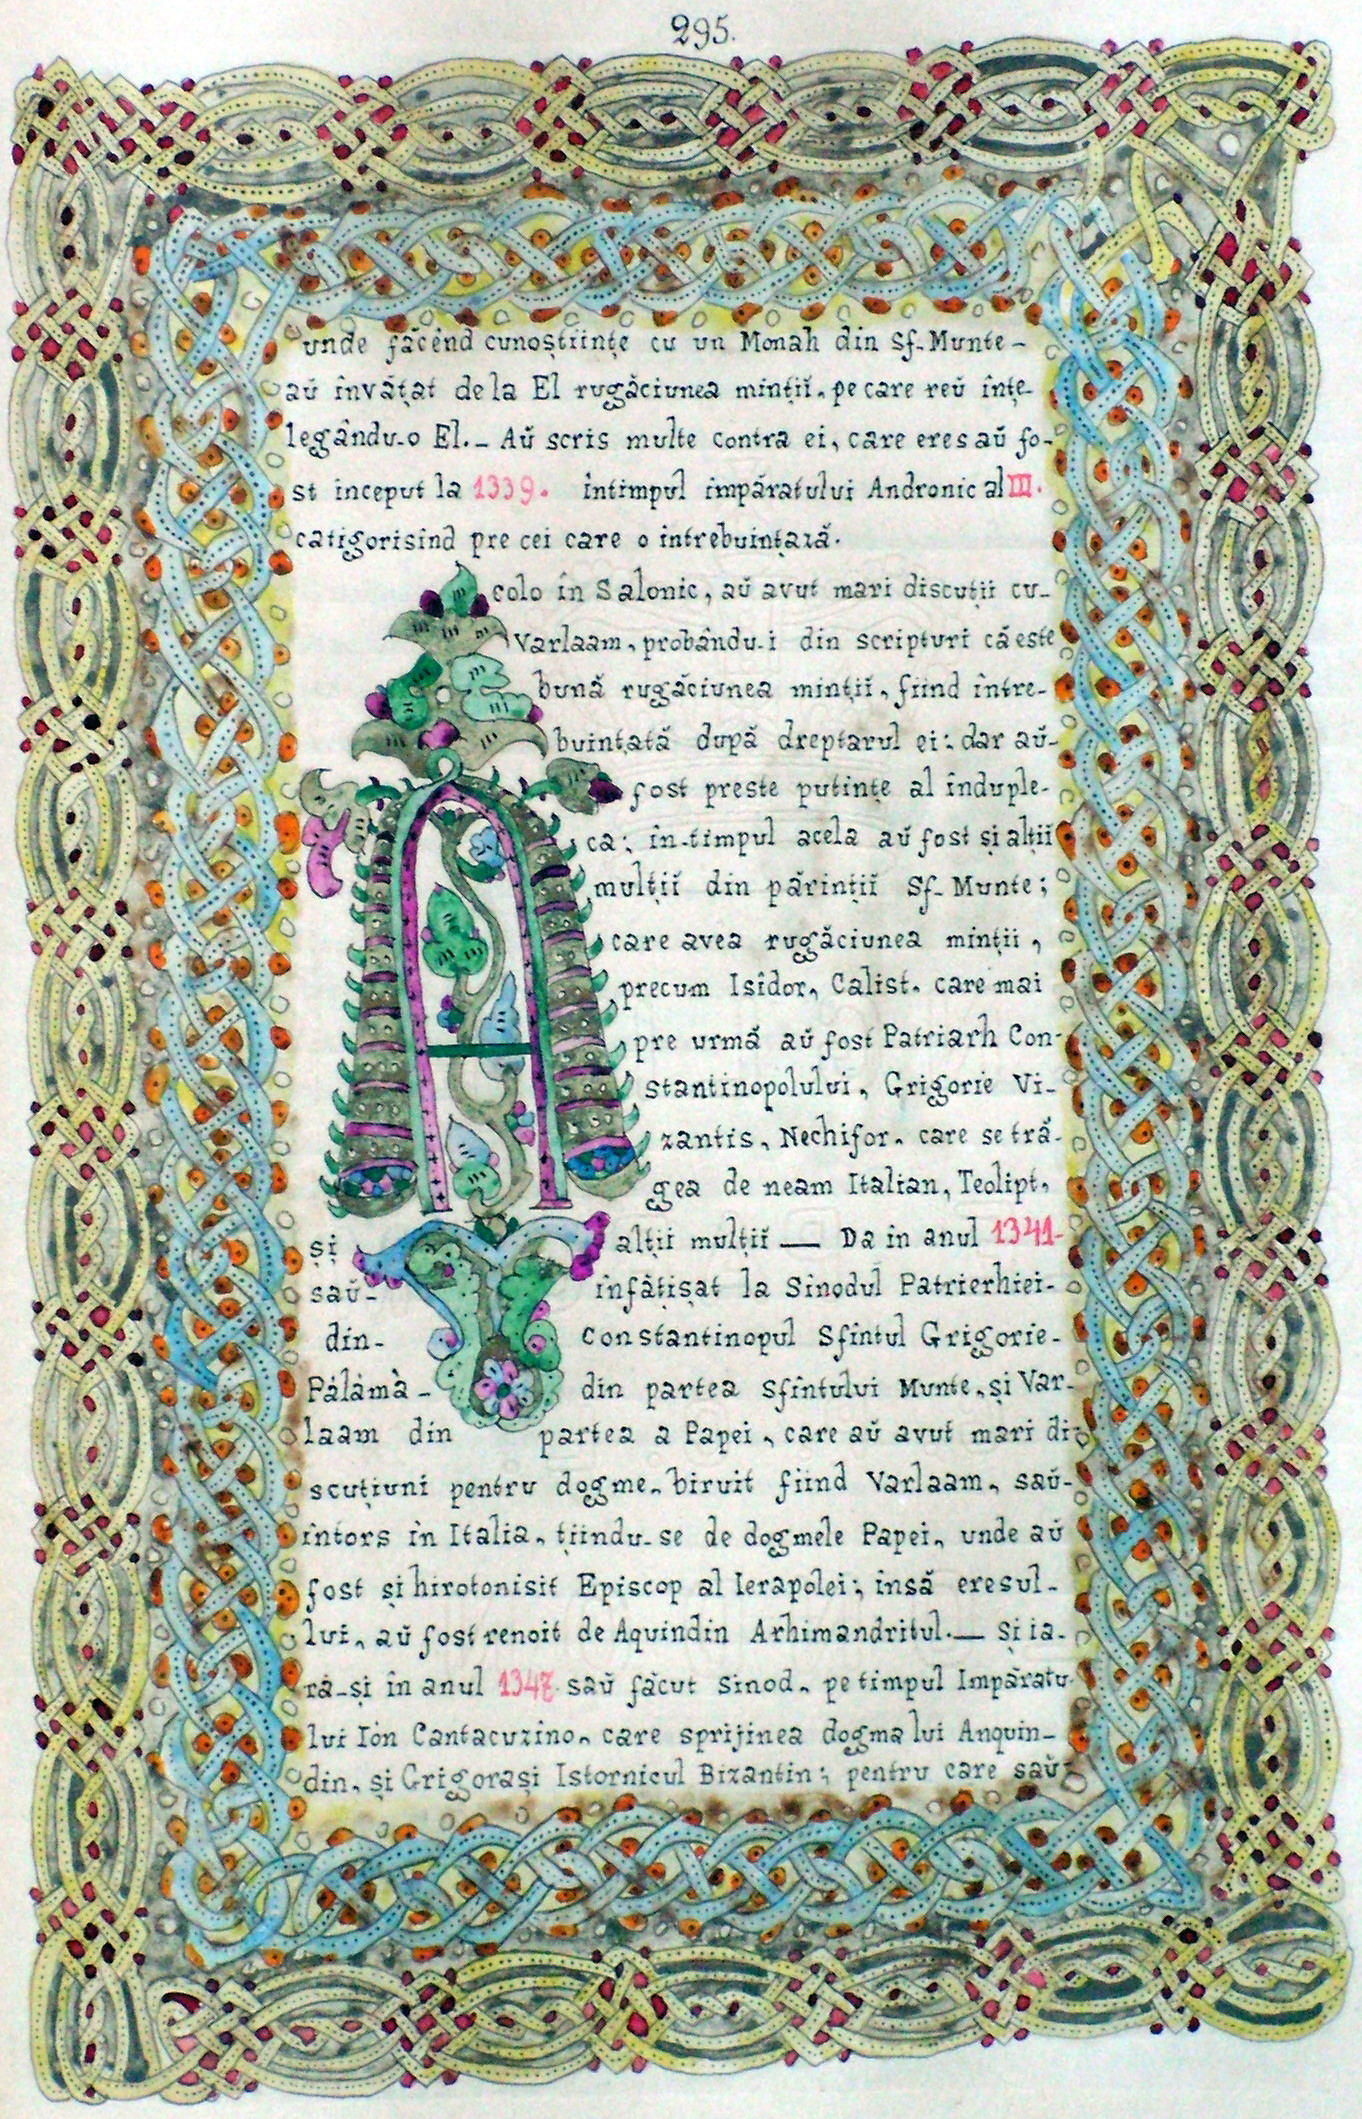 295.
unde făcênd cunoștiințe cu un Monah din Sf-Munte-
aŭ învățat de la El rugăciunea mințiĭ, pe care reŭ înțe-
legându-o El._ Aŭ scris multe contra ei, care eres aŭ fo-
st inceput la 1339. întimpul impăratului Andronic al III.
catigorisind pre cei care o intrebuințază.
Acolo în Salonic, aŭ avut mari discuții cu-
Varlaam, probându-i din scripturi că este
bună rugăciunea mințiĭ, fiind între-
buințată după dreptarul ei: dar aŭ-
fost preste putințe al înduple-
ca; în-timpul acela aŭ fost și alții
mulțiĭ din părințiĭ Sf-Munte;
care avea rugăciunea minții,
precum Isîdor, Calist, care mai
pre urmă aŭ fost Patriarh Con-
stantinopolului, Grigorie Vi-
zantis, Nechifor, care se tră-
gea de neam Italian, Teolipt,
și alții mulțiĭ — Da in anul 1341-
saŭ- înfățișat la Sinodul Patrierhiei-
din- Constantinopul Sfîntul Grigorie-
Pálámà- din partea Sfîntului Munte, și Var-
laam din partea a Papei, care aŭ avut mari di
scuțiuni pentru dogme, biruit fiind Varlaam, saŭ-
întors în Italia, țiindu-se de dogmele Papei, unde aŭ
fost și hirotonisit Episcop al Ierapolei; însă eresul-
lui, aŭ fost renoit de Aquindin Arhimandritul.— Și ia-
ră-și în anul 1347. saŭ făcut Sinod, pe timpul Impăratu-
lui Ión Cantacuzino, care sprijinea dogma lui Anquin-
din, și Grigorași Istornicul Bizantin; pentru care saŭ